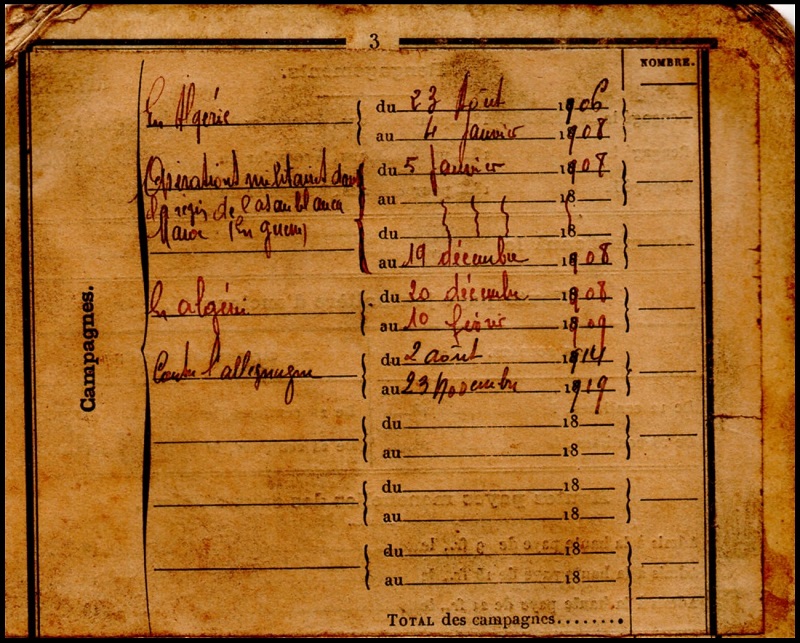 3
NOMBRE.
Campagnes.
En Algérie
du 23 Août 1906
au 4 Janvier 1908
Opérations militaires dans
la région de Casablanca
Maroc (En guerre)
du 5 Janvier 1908
au 18
du 18
au 19 décembre 1908
En algérie
du 20 décembre 1908
au 10 février 1909
Contre l'allemagne
du 2 août 1914
au 23 Novembre 1919
du 18
au 18
du 18
au 18
du 18
au 18
TOTAL des campagnes........